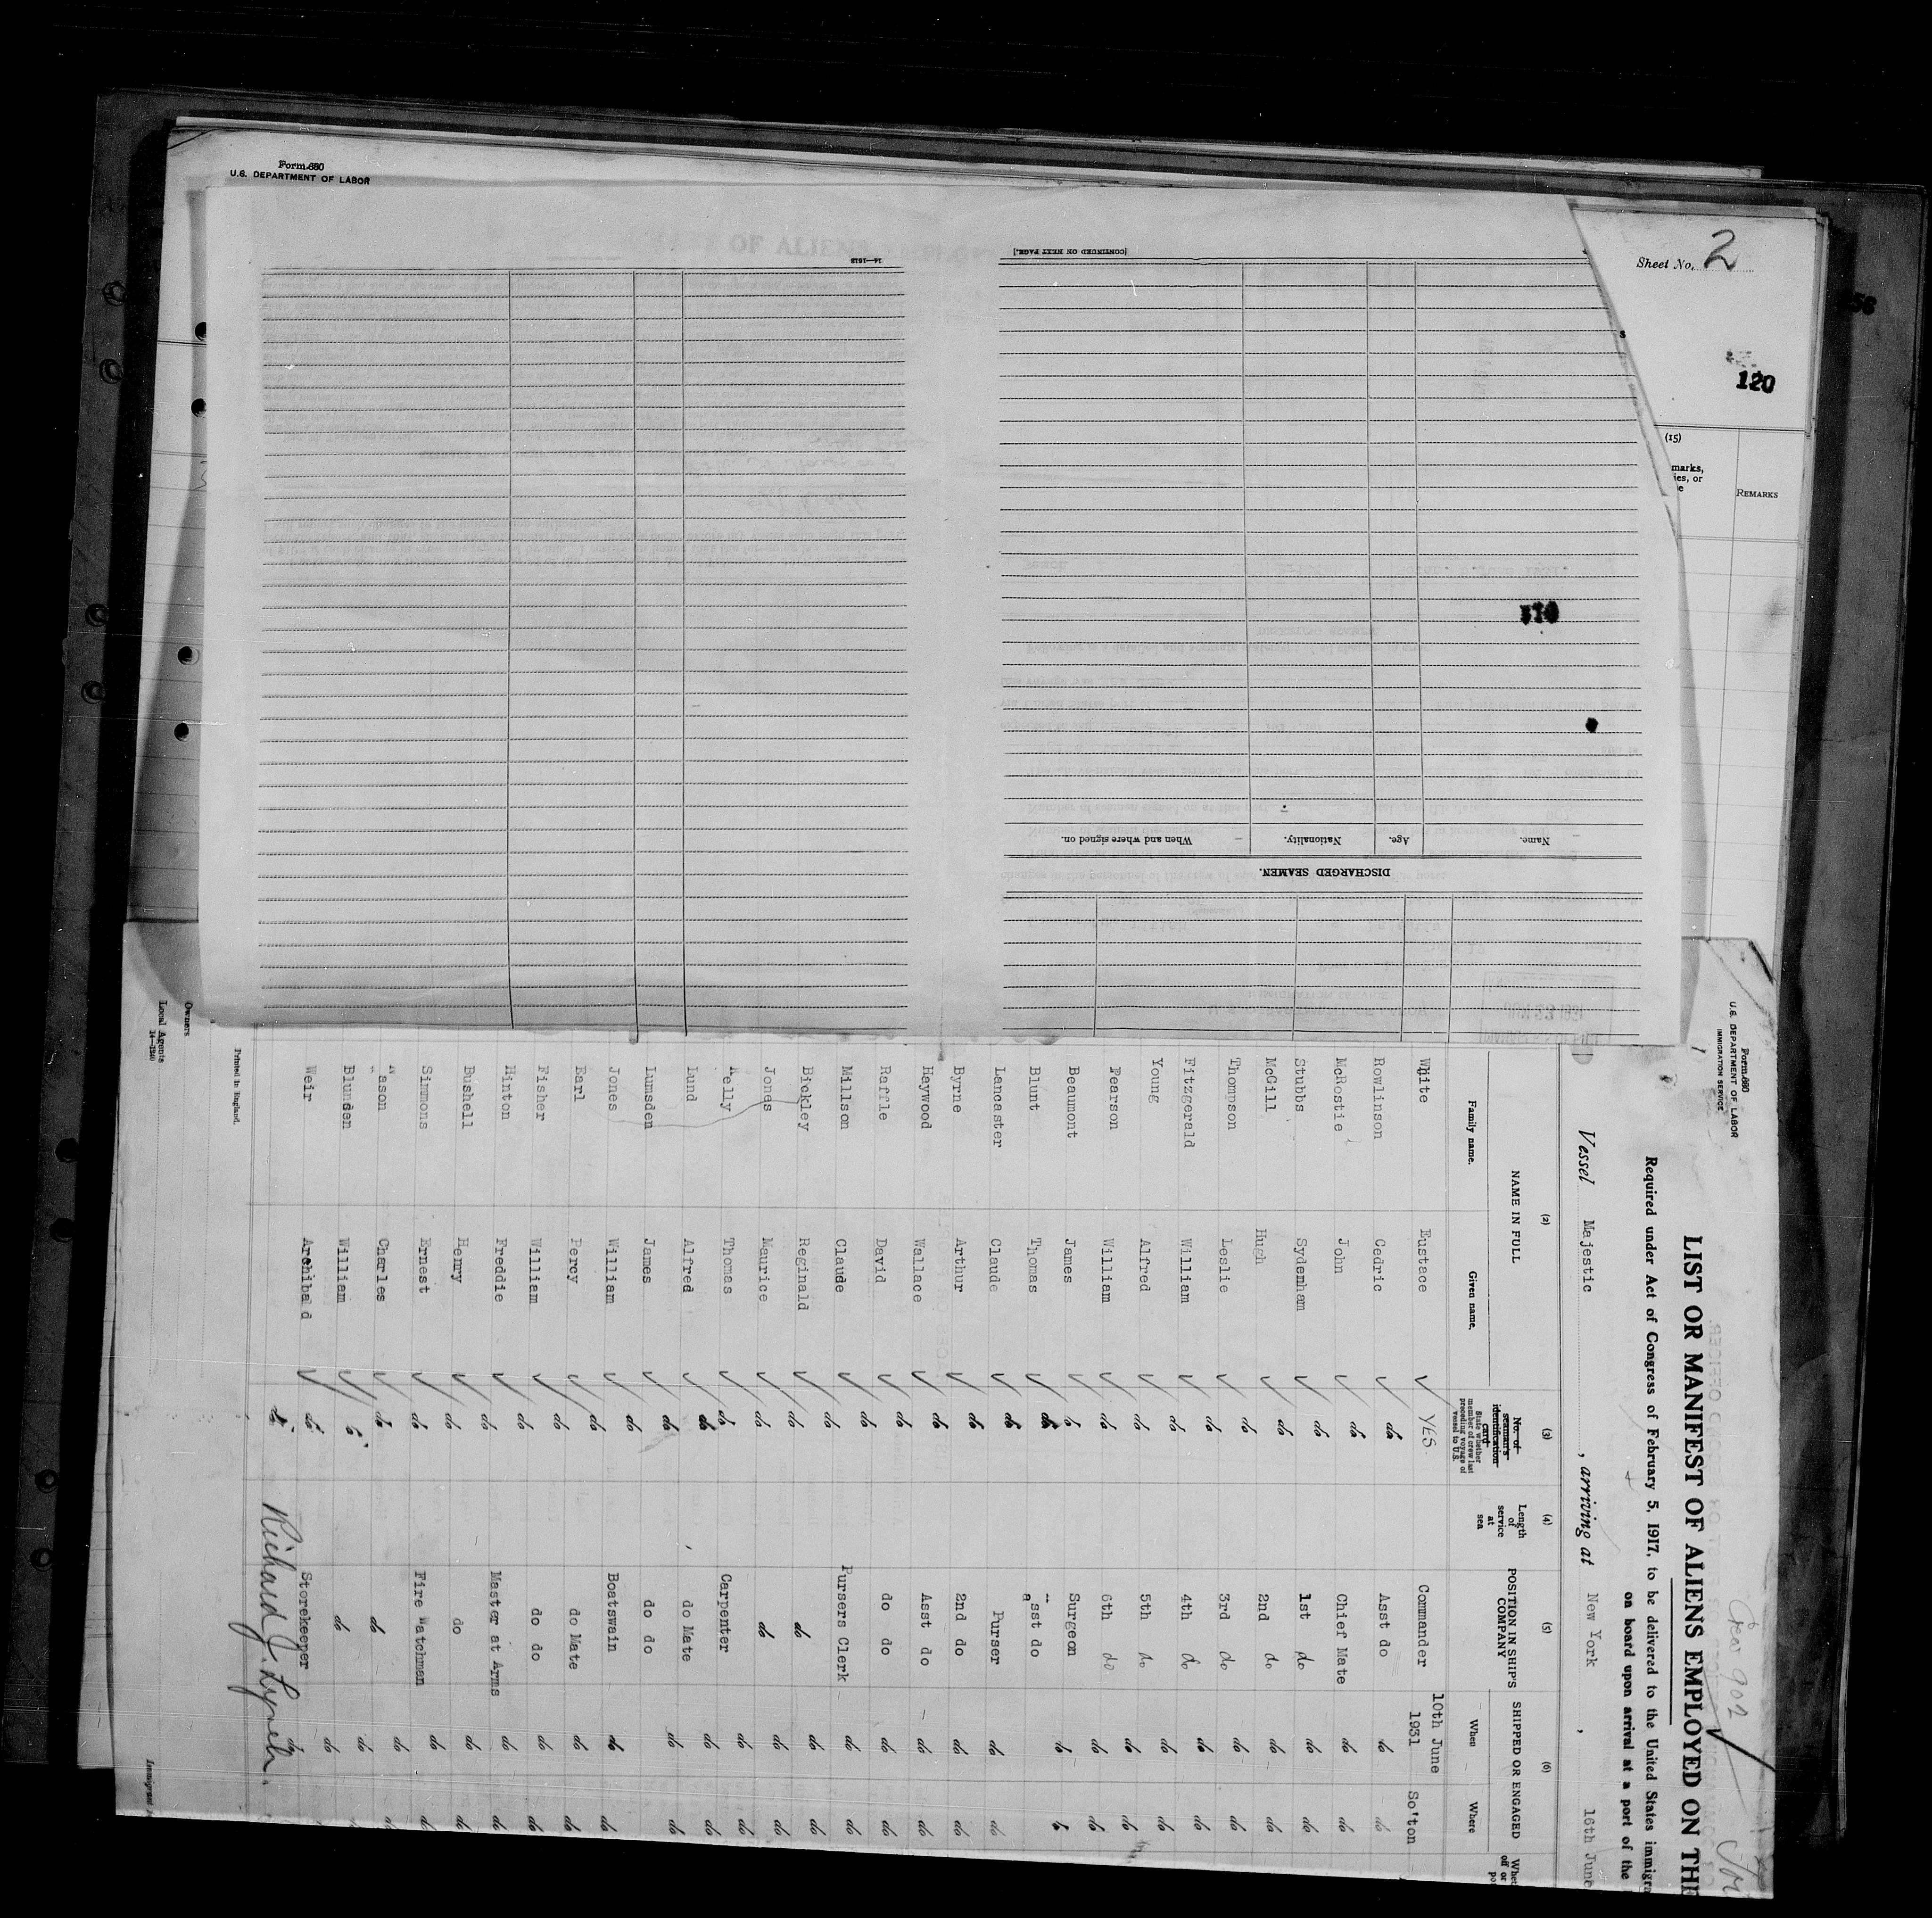 Form 680
U.S. DEPARTMENT OF LABOR
Sheet No. 2
120
(15)
marks,
ies, or
e
REMARKS
14—1618
[CONTINUED ON NEXT PAGE.]
Name. Age. Nationality. When and where signed on.
DISCHARGED SEAMEN.
Form 680
U.S. DEPARTMENT OF LABOR
IMMIGRATION SERVICE
Crew 902
LIST OR MANIFEST OF ALIENS EMPLOYED ON THE
Required under Act of Congress of February 5, 1917, to be delivered to the United States immigra
on board upon arrival at a port of the
Vessel Majestic, arriving at New York, 16th June
(2) (3) (4) (5) (6)
NAME IN FULL No. of seaman's identification card Length of service at sea POSITION IN SHIP'S COMPANY SHIPPED OR ENGAGED
State whether member of crew last preceding voyage of vessel to U.S.
Family name. Given name. When Where
White Eustace YES. Commander 10th June 1931 So'ton
Rowlinson Cedric do Asst do do do
McRostie John do Chief Mate do do
Stubbs Sydenham do 1st do do do
McGill Hugh do 2nd do do do
Thompson Leslie do 3rd do do do
Fitzgerald William do 4th do do do
Young Alfred do 5th do do do
Pearson William do 6th do do do
Beaumont James do Surgeon do do
Blunt Thomas do Asst do
Lancaster Claude do Purser do do
Byrne Arthur do 2nd do do do
Haywood Wallace do Asst do do do
Raffle David do do do do do
Millson Claude do Pursers Clerk do do
Bickley Reginald do do do do
Jones Maurice do do do do
Kelly Thomas do Carpenter do do
Lund Alfred do do Mate do do
Lumsden James do do do do do
Jones William do Boatswain do do
Earl Percy do do Mate do do
Fisher William do do do do do
Hinton Freddie do Master at Arms do do
Bushell Henry do do do do
Simmons Ernest do Fire Watchman do do
ason Charles do do do do
Blunden William do do do
Weir Archibald do Storekeeper do
Richard J. Lynch.
Printed in England.
Owners
Local Agents
14—1240